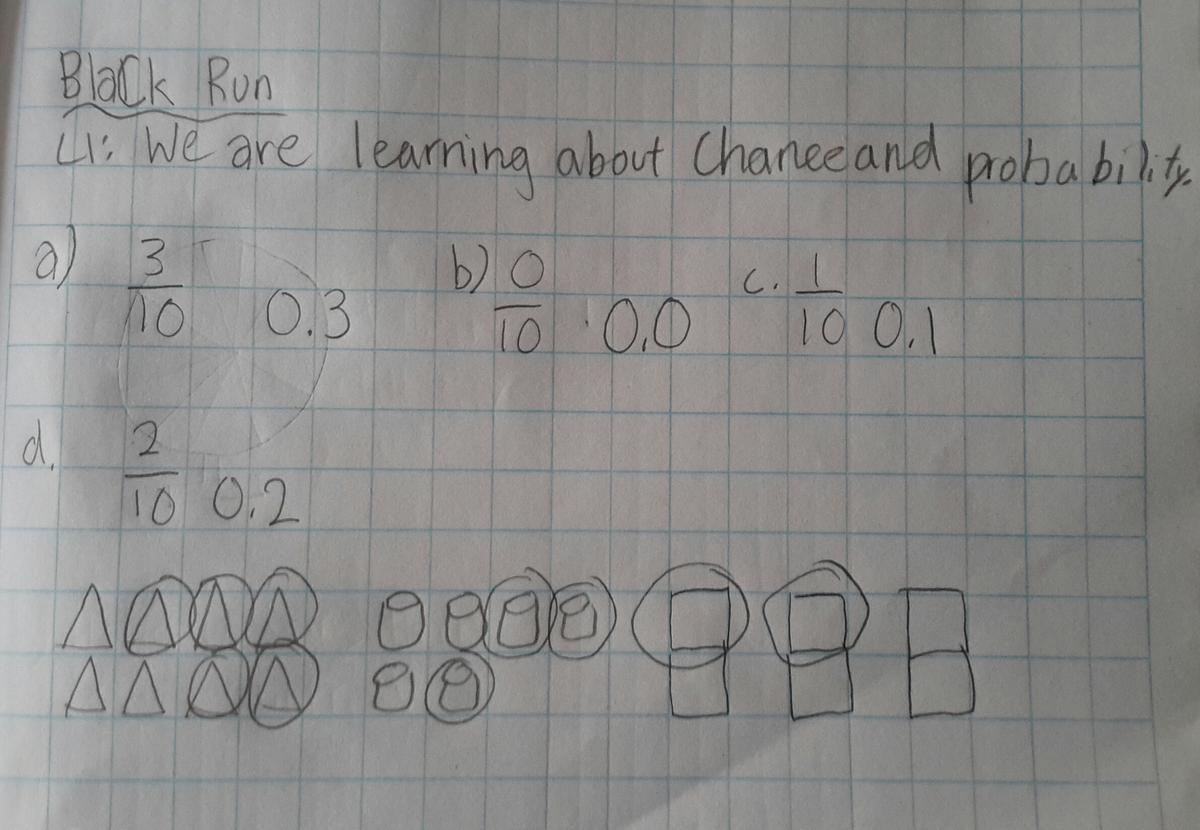 Black Run
LI: We are learning about Chance and probability.
a) 3/10 0.3 b) 0/10 0.0 c. 1/10 0.1
d. 2/10 0.2